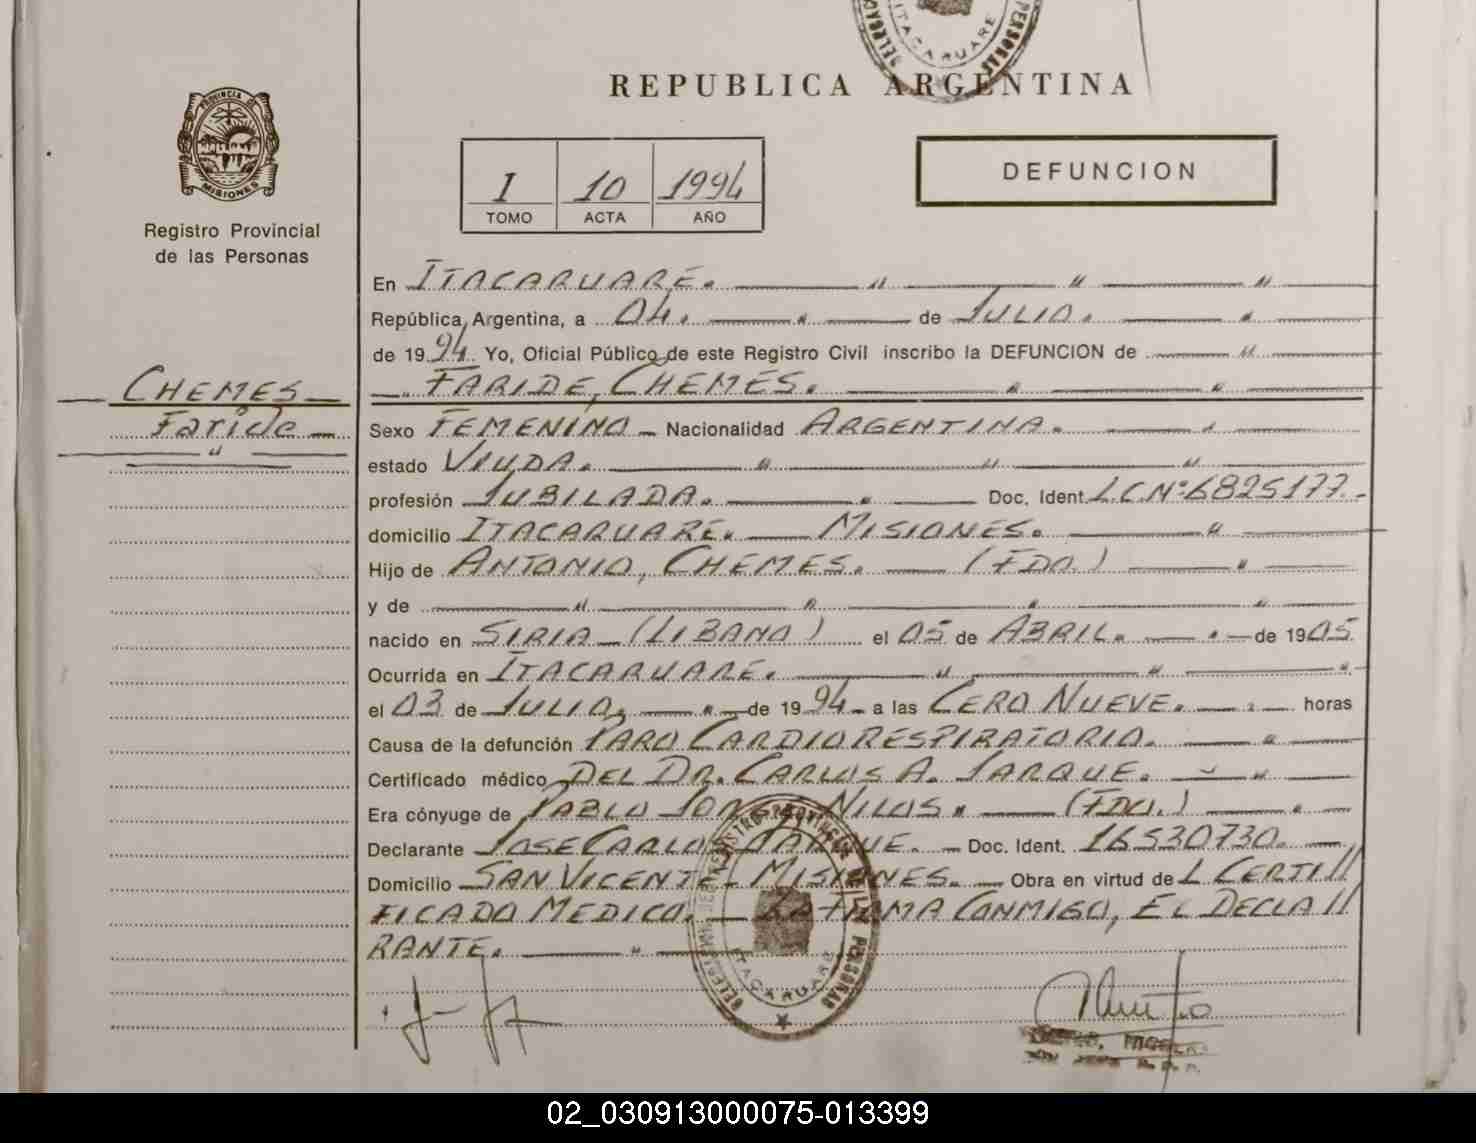 DELEGACION PERSONAS
ITACARUARE
REPUBLICA ARGENTINA
PROVINCIA DE
MISIONES
Registro Provincial
de las Personas
I 10 1994
TOMO ACTA AÑO
DEFUNCION
En ITACARUARE. — " — " — "
República Argentina, a 04. — " — de JULIO. — " —
de 1994. Yo, Oficial Público de este Registro Civil inscribo la DEFUNCION de — " —
—. FARIDE, CHEMES. — " — " —
— CHEMES —
Faride —
— " —
Sexo FEMENINO — Nacionalidad ARGENTINA. — " —
estado VIUDA. — " — " — " —
profesión JUBILADA. — " — Doc. Ident. L.C.Nº 6825177.-
domicilio ITACARUARE. — MISIONES. — " —
Hijo de ANTONIO, CHEMES. — (FDO.) — " —
y de — " — " — " — " —
nacido en SIRIA — (LIBANO) el 05 de ABRIL. — " — de 1905
Ocurrida en ITACARUARE. — " — " — "
el 03 de JULIO. — " — de 1994 — a las CERO NUEVE. — " — horas
Causa de la defunción PARO CARDIORESPIRATORIO. — " —
Certificado médico DEL DR. CARLOS A. JARQUE. — " —
Era cónyuge de PABLO JORGE NILOS. — (FDO.) — " —
Declarante JOSE CARLOS JARQUE. — Doc. Ident. 16530730. —
Domicilio SAN VICENTE — MISIONES. — Obra en virtud de L CERTI//
FICADO MEDICO. — LA FIRMA CONMIGO, EL DECLA//
RANTE. — " —
DELEGACION DEL REGISTRO PROVINCIAL DE LAS PERSONAS
ITACARUARE
02_030913000075-013399